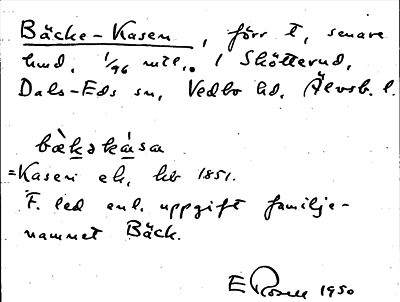 Bäcke-Kasen, förr t, senare
hmd. 1/96 mtl. i Skötterud,
Dals-Eds sn, Vedbo hd, Älvsb. l.
bὰkskása
=Kasen ek, hb 1851.
F. led enl. uppgift familje-
namnet Bäck.
E Rosell 1950